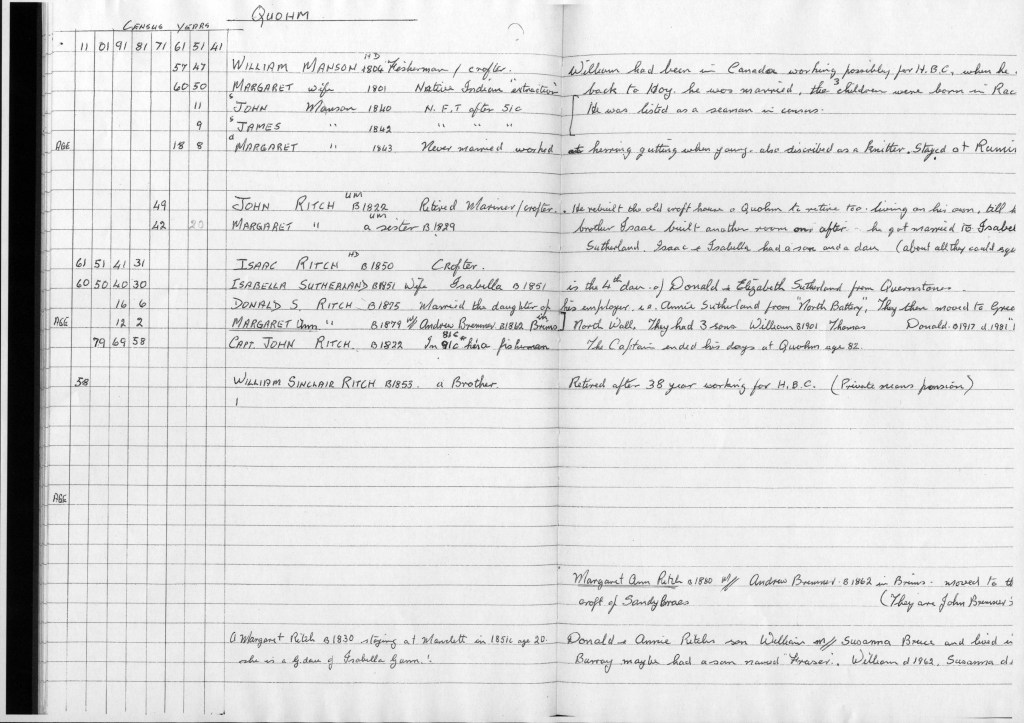 QUOHM
CENSUS YEARS
11 01 91 81 71 61 51 41
57 47 WILLIAM MANSON HD 1804 Fisherman / crofter. William had been in Canada working possibly for H.B.C. when he
60 50 MARGARET wife 1801 Native Indian "extraction" back to Hoy. he was married, the 3 children were born in
11 s JOHN Manson 1840 N.F.T after 51c He was listed as a seaman in census.
9 s JAMES " 1842 " " "
AGE 18 8 d MARGARET " 1843 Never married worked at herring gutting when young. also discribed as a Knitter. Stayed at
49 JOHN RITCH UM B1822 Retired Mariner/crofter. He rebuilt the old croft house @ Quohm to retire too. living on his own, till
42 20 MARGARET " UM a sister B1829 brother Isaac built another room on: after he got married to
Sutherland. Isaac & Isabella had a son and a daur (about all they could
61 51 41 31 ISAAC RITCH HD B1850 Crofter.
60 50 40 30 ISABELLA SUTHERLAND B1851 Wife Isabella B1851 is the 4th daur. of Donald & Elizabeth Sutherland from Quernstones.
16 6 DONALD S. RITCH B1875 Married the daughter of his employer. i.e. Annie Sutherland from "North Battery". They then moved to
AGE 12 2 MARGARET Ann " B1879 m// Andrew Bremner B1862 in Brims] North Wall. They had 3 sons William B1901 Thomas Donald. B1917 d.1981"
79 69 58 CAPT. JOHN RITCH. B1822 In "81c" he's a fisherman The Captain ended his days at Quohm age 82.
58 WILLIAM SINCLAIR RITCH B1853. a Brother. Retired after 38 year working for H.B.C. (Private means pension)
AGE
Margaret Ann Ritch B1880 m// Andrew Bremner. B1862 in Brims - moved to
croft of Sandy Braes (They are John Bremner's
A Margaret Ritch B1830 staying at in 1851c age 20. Donald & Annie Ritchs son William m// Susanna Bruce and lived
she is a G.daur of Isabella Gunn! Burray maybe had a son named Fraser. William d 1962. Susanna